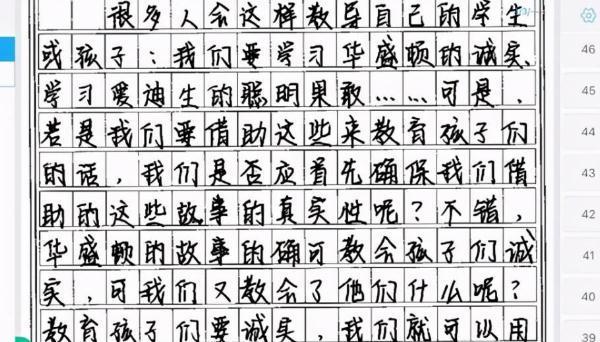 很多人会这样教导自己的学生
或孩子：我们要学习华盛顿的诚实、
学习爱迪生的聪明果敢……可是，
若是我们要借助这些来教育孩子们
的话，我们是否应首先确保我们借
助的这些故事的真实性呢？不错，
华盛顿的故事的确可教会孩子们诚
实，可我们又教会了他们什么呢？
教育孩子们要诚实，我们就可以用
46
45
44
43
42
41
40
39